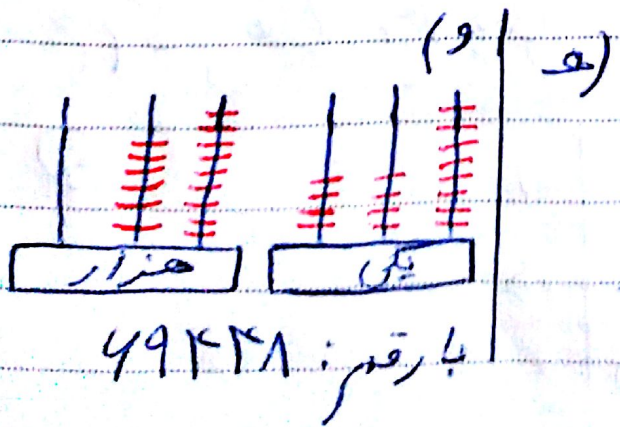 هـ)
و)
هزار یکی
با رقم: ۶۹۴۴۸